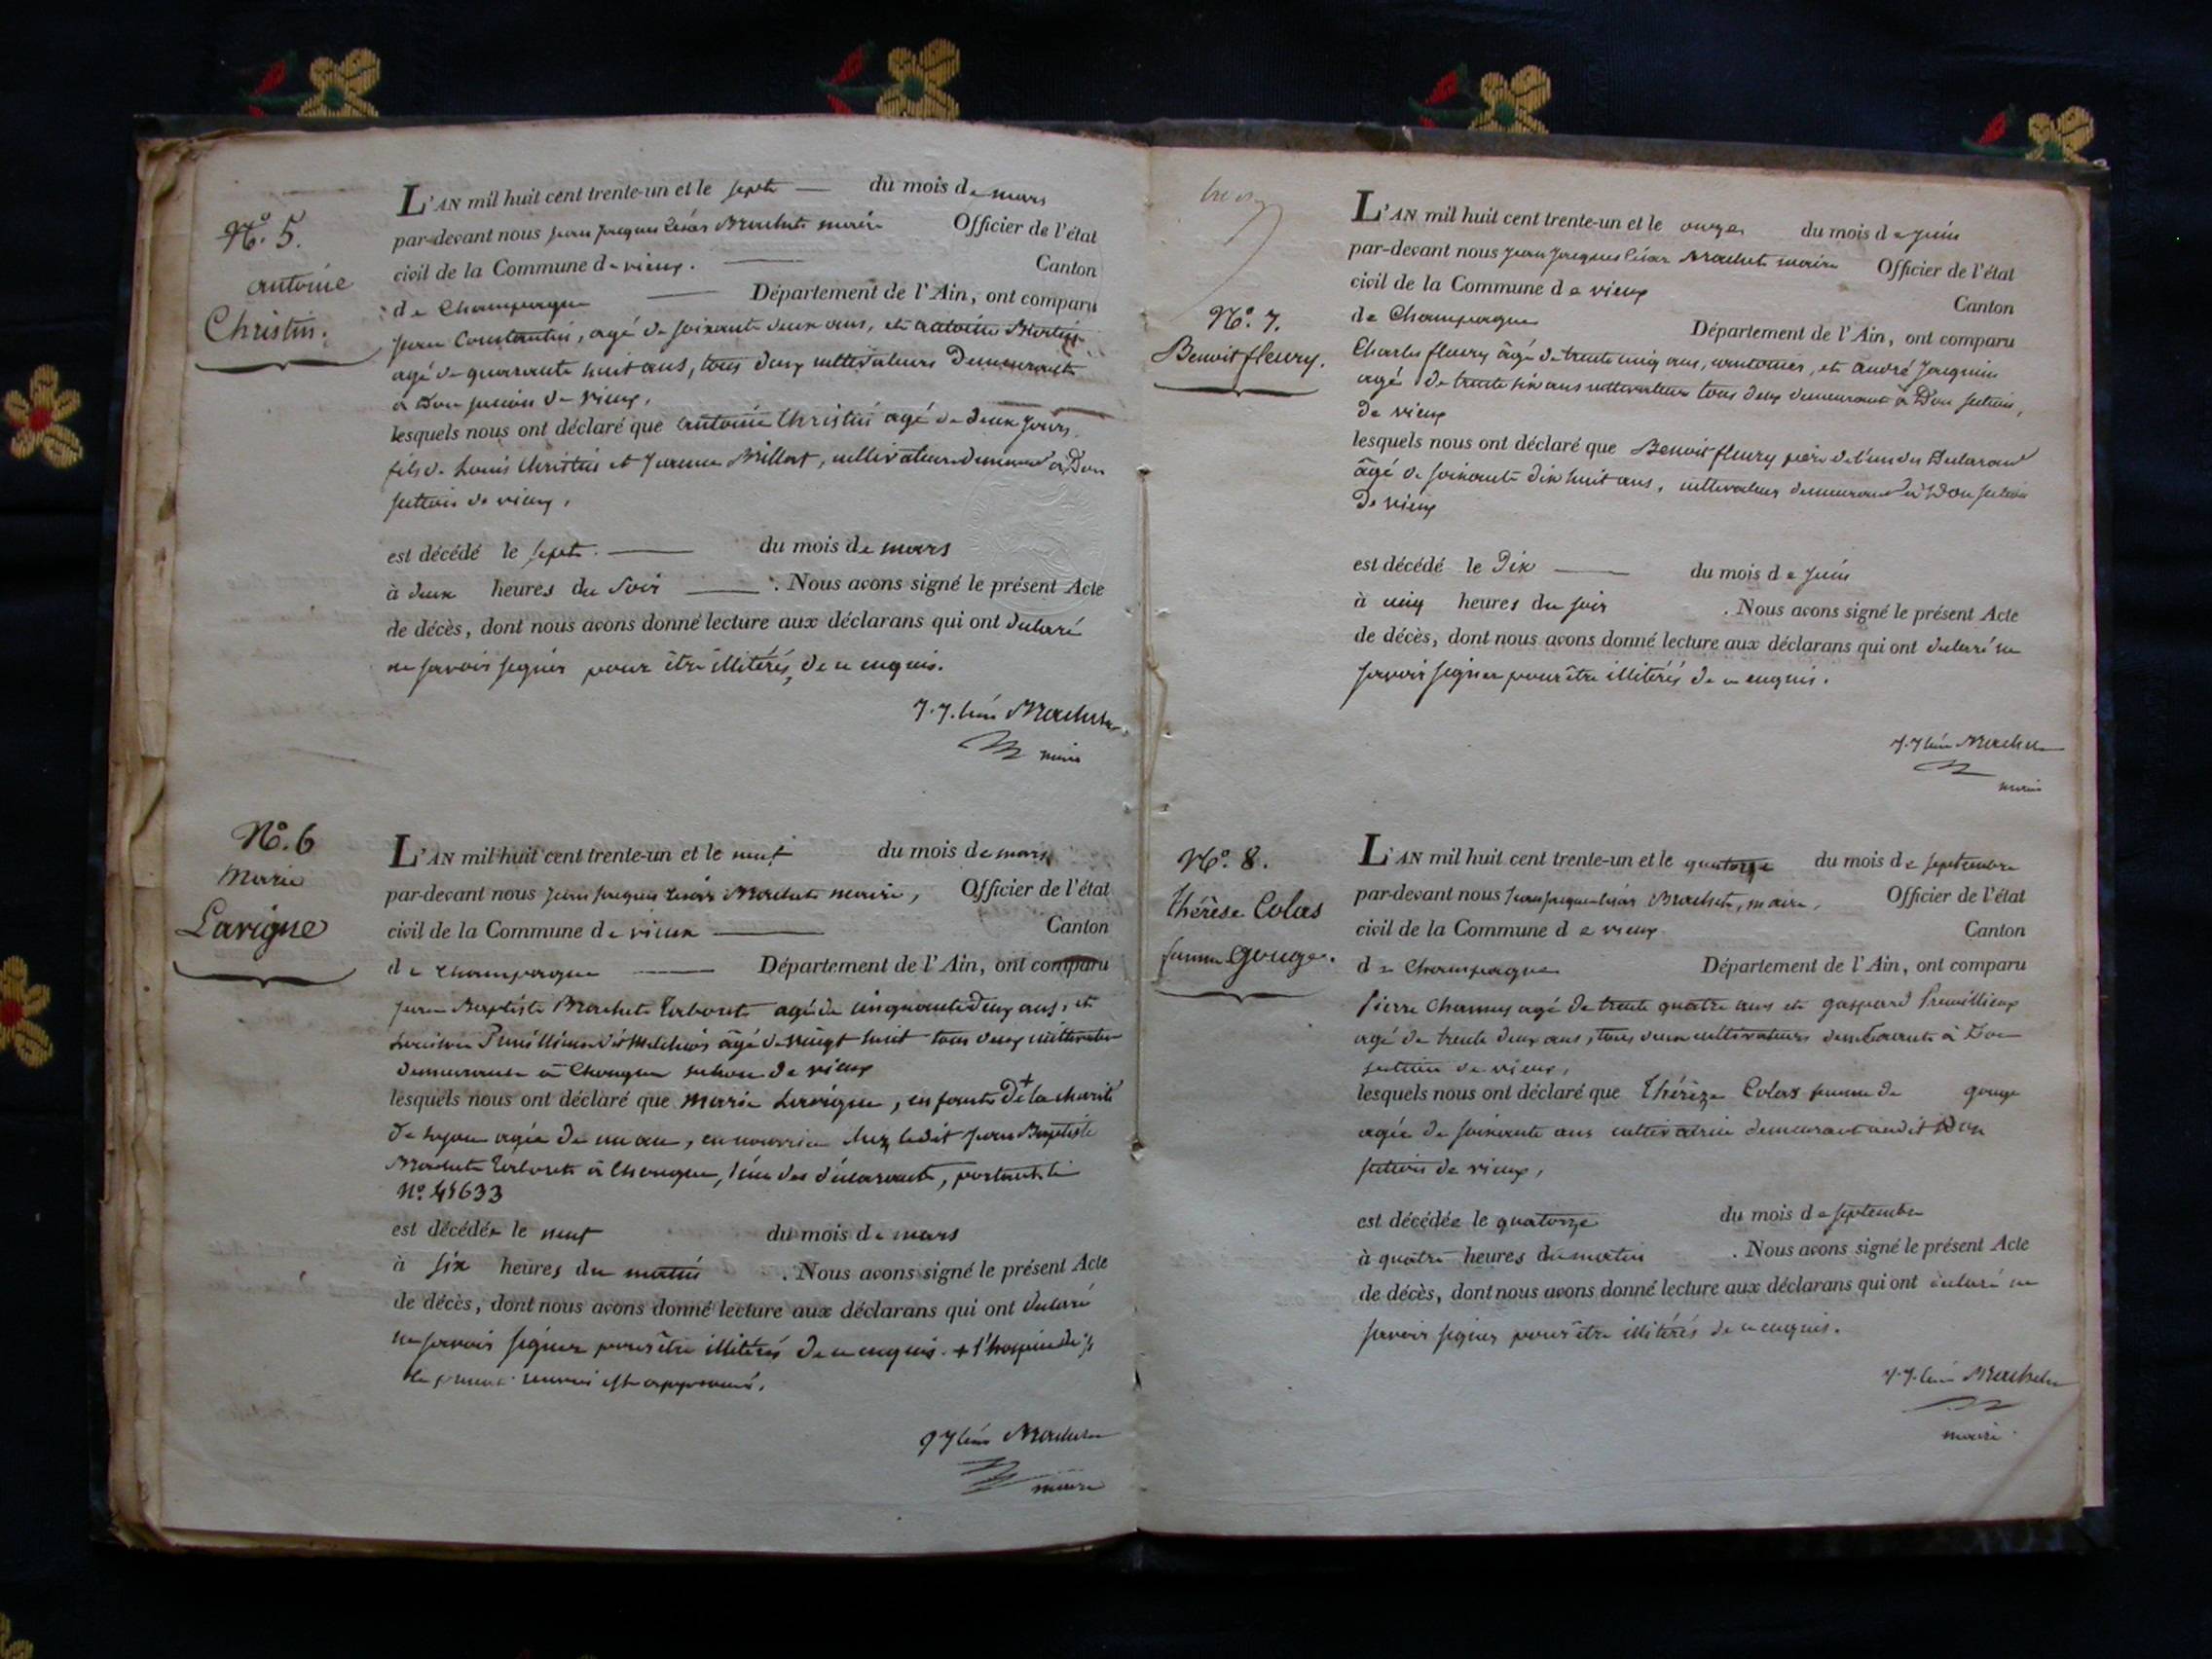 N.º 5.
antoine
Christin.
L'AN mil huit cent trente-un et le sept du mois de mars
par-devant nous jean jacques César Brachet maire Officier de l'état
civil de la Commune de vieux. Canton
de Champagne Département de l'Ain, ont comparu
jean Constantin, agé de soixante deux ans, et antoine Martin
agé de quarante huit ans, tous deux cultivateurs Demeurants
à Don section de vieux,
lesquels nous ont déclaré que antoine Christin agé de deux jours
fils de Louis Christin et Billat, cultivateurs à Don
section de vieux,
est décédé le sept. du mois de mars
à deux heures du soir . Nous avons signé le présent Acte
de décès, dont nous avons donné lecture aux déclarans qui ont déclaré
ne savoir signer pour être illitérés, de ce enquis.
J. J. César Brachet
maire
N.º 6
Marie
Lavigne
L'AN mil huit cent trente-un et le neuf du mois de mars
par-devant nous jean jacques César Brachet maire, Officier de l'état
civil de la Commune de vieux Canton
de Champagne Département de l'Ain, ont comparu
jean Baptiste Brachet agé de cinquante deux ans, et
agé de vingt huit tous deux cultivateurs
demeurants à Chongne section de vieux
lesquels nous ont déclaré que marie Lavigne, enfant de + la charité
de agée de un an, en nourrice chez ledit jean Baptiste
Brachet à Chongne, l'un des déclarants, portant le
N.º 45633
est décédée le neuf du mois de mars
à six heures du matin . Nous avons signé le présent Acte
de décès, dont nous avons donné lecture aux déclarans qui ont déclaré
ne savoir signer pour être illitérés de ce enquis. + l'hospice de
le présent renvoi est approuvé.
J J César Brachet
maire
N.º 7.
Benoit fleury.
L'AN mil huit cent trente-un et le onze du mois de juin
par-devant nous jean jacques César Brachet maire Officier de l'état
civil de la Commune de vieux Canton
de Champagne Département de l'Ain, ont comparu
Charles fleury âgé de trente cinq ans, cantonier, et andré jacquin
agé de trente six ans cultivateur tous deux demeurant à Don section,
de vieux
lesquels nous ont déclaré que Benoit fleury père de l'un des Déclarans
âgé de soixante dix huit ans, cultivateur demeurant à Don section
De vieux
est décédé le Dix du mois de juin
à cinq heures du soir . Nous avons signé le présent Acte
de décès, dont nous avons donné lecture aux déclarans qui ont déclaré ne
savoir signer pour être illitérés de ce enquis.
J. J César Brachet
maire
N.º 8.
thérèse Colas
femme gouge.
L'AN mil huit cent trente-un et le quatorze du mois de septembre
par-devant nous jean jacques César Brachet, maire, Officier de l'état
civil de la Commune de vieux Canton
de Champagne Département de l'Ain, ont comparu
pierre Charmey agé de trente quatre ans et gaspard premillieux
agé de trente deux ans, tous deux cultivateurs demeurants à Don
section de vieux,
lesquels nous ont déclaré que thérèze Colas femme de gouge
agée de soixante ans cultivatrice demeurant audit Don
section de vieux,
est décédée le quatorze du mois de septembre
à quatre heures du matin . Nous avons signé le présent Acte
de décès, dont nous avons donné lecture aux déclarans qui ont déclaré ne
savoir signer pour être illitérés de ce enquis.
J. J. César Brachet
maire